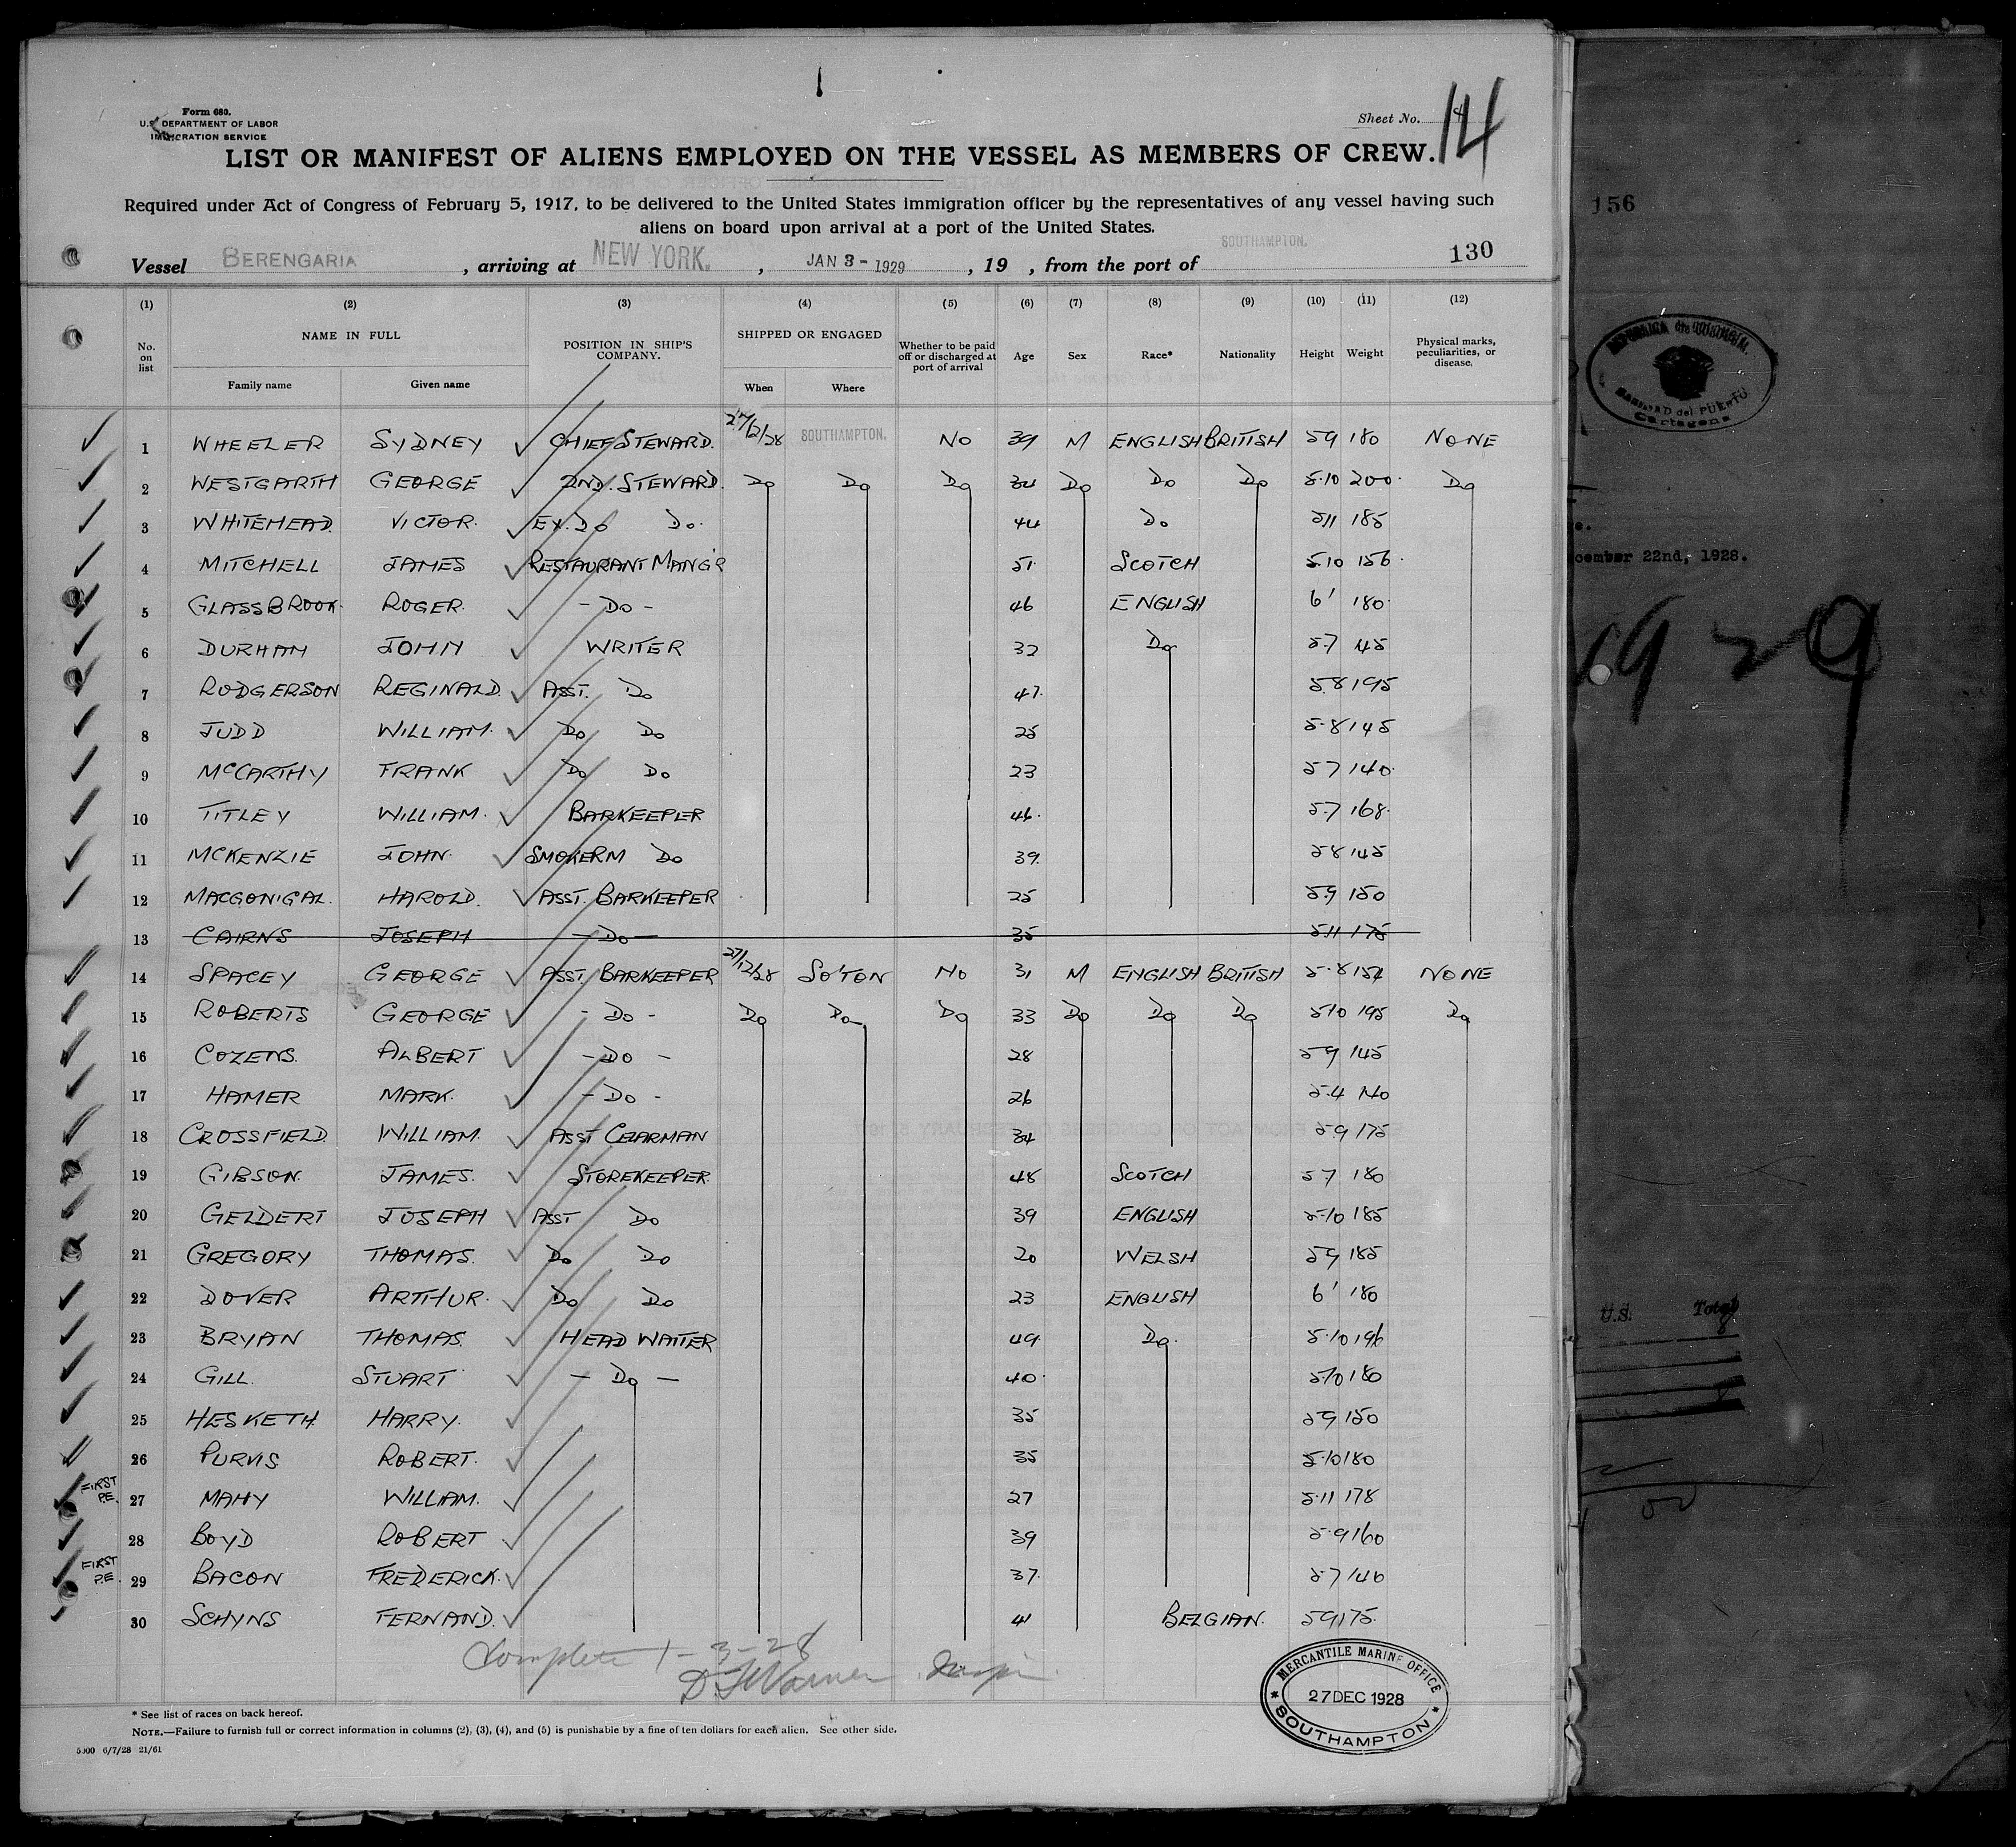 Form 680.
U.S. DEPARTMENT OF LABOR
IMMIGRATION SERVICE
Sheet No. 4
14
LIST OR MANIFEST OF ALIENS EMPLOYED ON THE VESSEL AS MEMBERS OF CREW.
Required under Act of Congress of February 5, 1917, to be delivered to the United States immigration officer by the representatives of any vessel having such
aliens on board upon arrival at a port of the United States.
Vessel BERENGARIA, arriving at NEW YORK., JAN 3-1929, 19 , from the port of SOUTHAMPTON. 130
(1) (2) (3) (4) (5) (6) (7) (8) (9) (10) (11) (12)
No. on list NAME IN FULL Family name Given name POSITION IN SHIP'S COMPANY. SHIPPED OR ENGAGED When Where Whether to be paid off or discharged at port of arrival Age Sex Race* Nationality Height Weight Physical marks, peculiarities, or disease.
1 WHEELER SYDNEY CHIEF STEWARD. 27/12/28 SOUTHAMPTON. NO 39 M ENGLISH BRITISH 59 180 NONE
2 WESTGARTH GEORGE 2ND. STEWARD. Do Do Do 34 Do Do Do 5.10 200. Do
3 WHITEHEAD. VICTOR. EX. Do Do. 44 Do 511 185
4 MITCHELL JAMES RESTAURANT MANG'R 51 SCOTCH 510 156.
5 GLASSBROOK. ROGER. - Do - 46 ENGLISH 6' 180.
6 DURHAM JOHN WRITER 32 Do 57 45
7 RODGERSON REGINALD. ASST. Do 47. 58 195
8 JUDD WILLIAM. Do Do 25 5.8 145
9 McCARTHY FRANK Do Do 23 57 140.
10 TITLEY WILLIAM. BARKEEPER 46. 5.7 168.
11 MCKENZIE JOHN. SMOKERM Do 39. 58 145
12 MACGONIGAL. HAROLD. ASST. BARKEEPER 25 5.9 150
13 CAIRNS JOSEPH - Do - 35 511 175
14 SPACEY GEORGE ASST. BARKEEPER 27/12/28 SO'TON NO 31 M ENGLISH BRITISH 5.8 154 NONE
15 ROBERTS GEORGE - Do - Do Do Do 33 Do Do Do 510 195 Do
16 COZENS. ALBERT - Do - 28 59 145
17 HAMER MARK. - Do - 26 5.4 140
18 CROSSFIELD. WILLIAM. ASST CELARMAN 34 5.9 175
19 GIBSON. JAMES. STOREKEEPER. 48 SCOTCH 57 180
20 GELDERT JOSEPH ASST Do 39 ENGLISH 5.10 185
21 GREGORY THOMAS. Do Do 20 WELSH 59 185
22 DOVER ARTHUR. Do Do 23 ENGLISH 6' 180
23 BRYAN THOMAS. HEAD WAITER 49. Do. 5.10 196
24 GILL. STUART - Do - 40. 510 180
25 HESKETH HARRY. 35 59 150
26 PURVIS ROBERT. 35 5.10 180
FIRST P.E. 27 MAHY WILLIAM. 27 5.11 178
28 BOYD ROBERT 39 5.9 160
FIRST P.E. 29 BACON FREDERICK. 37. 5.7 140
30 SCHYNS FERNAND. 41 BELGIAN. 59 175.
Complete 1-3-28
MERCANTILE MARINE OFFICE
27 DEC 1928
SOUTHAMPTON
* See list of races on back hereof.
NOTE.—Failure to furnish full or correct information in columns (2), (3), (4), and (5) is punishable by a fine of ten dollars for each alien. See other side.
5000 6/7/28 21/61
156
SANIDAD del PUERTO
Cartagena
22nd, 1928.
1929
U.S. Total